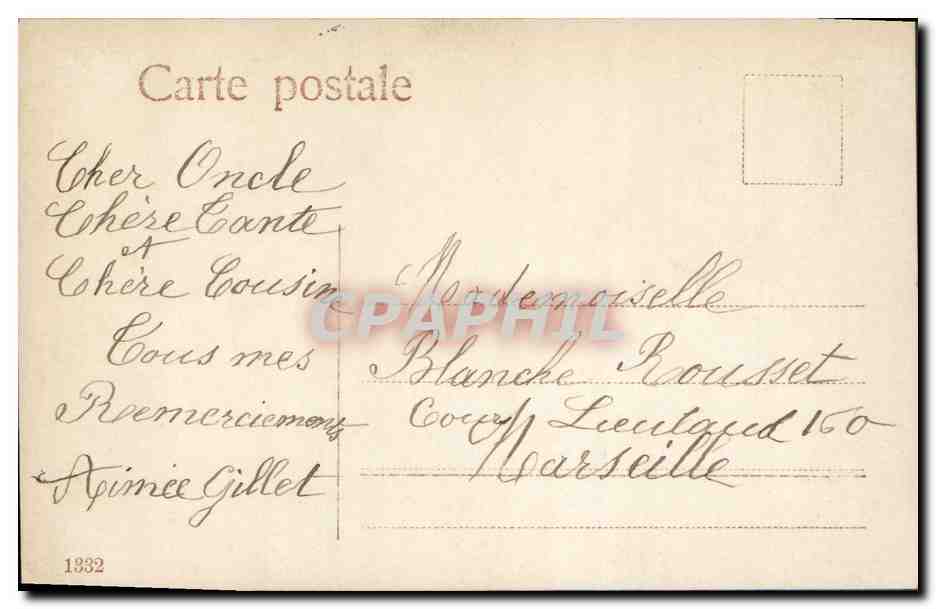 Carte postale
Cher Oncle
Chère Tante
et
Chère Cousine
Tous mes
Remerciements
Aimée Gillet
Mademoiselle
Blanche Rousset
Cours Lieutaud 160
Marseille
CPAPHIL
1332